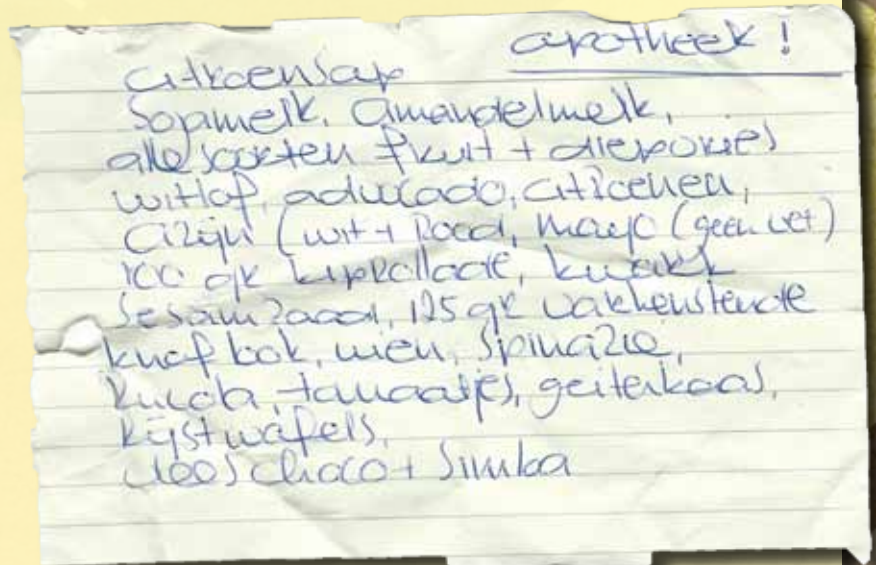 apotheek !
citroensap
Sojamelk, amandelmelk,
alle soorten fruit + diepvries
witlof, advocado, citroenen,
azijn (wit + Rood, mayo (geen vet)
100 gr kiprollade, kwark
Sesamzaad, 125 gr varkenstende
knoflook, uien, Spinazie,
tomaatjes, geitenkaas,
Rijstwafels,
doos choco + Simba